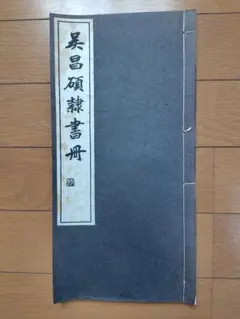 吴昌碩隸書册